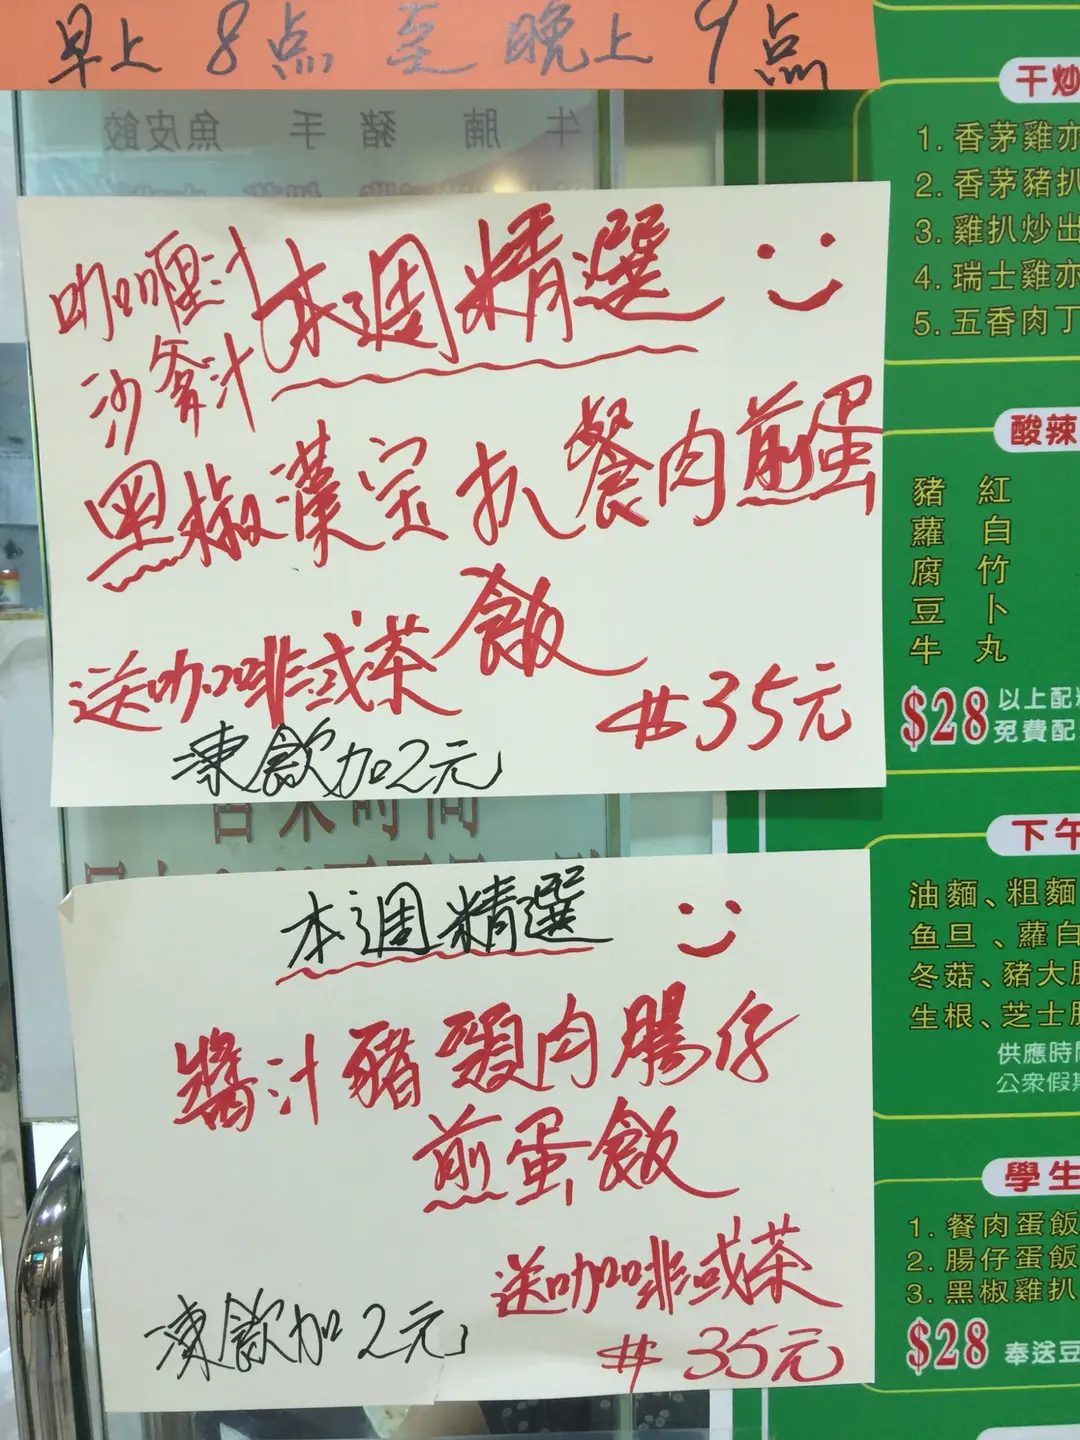 早上 8 点 至 晚上 9 点
牛腩 豬手 魚皮餃
本週精選
咖喱汁
沙爹汁
黑椒漢宝扒餐肉煎蛋
飯
送咖啡或茶
#35元
凍飲加2元
本週精選
醬汁豬頸肉腸仔
煎蛋飯
送咖啡或茶
凍飲加2元
#35元
干炒
1. 香茅雞
2. 香茅豬扒
3. 雞扒炒出
4. 瑞士雞
5. 五香肉丁
酸辣
豬 紅
蘿 白
腐 竹
豆 卜
牛 丸
$28 以上配
免費配
下午
油麵、粗麵
鱼旦、蘿白
冬菇、豬大
生根、芝士
供應時
公衆假
學生
1. 餐肉蛋飯
2. 腸仔蛋飯
3. 黑椒雞扒
$28 奉送豆